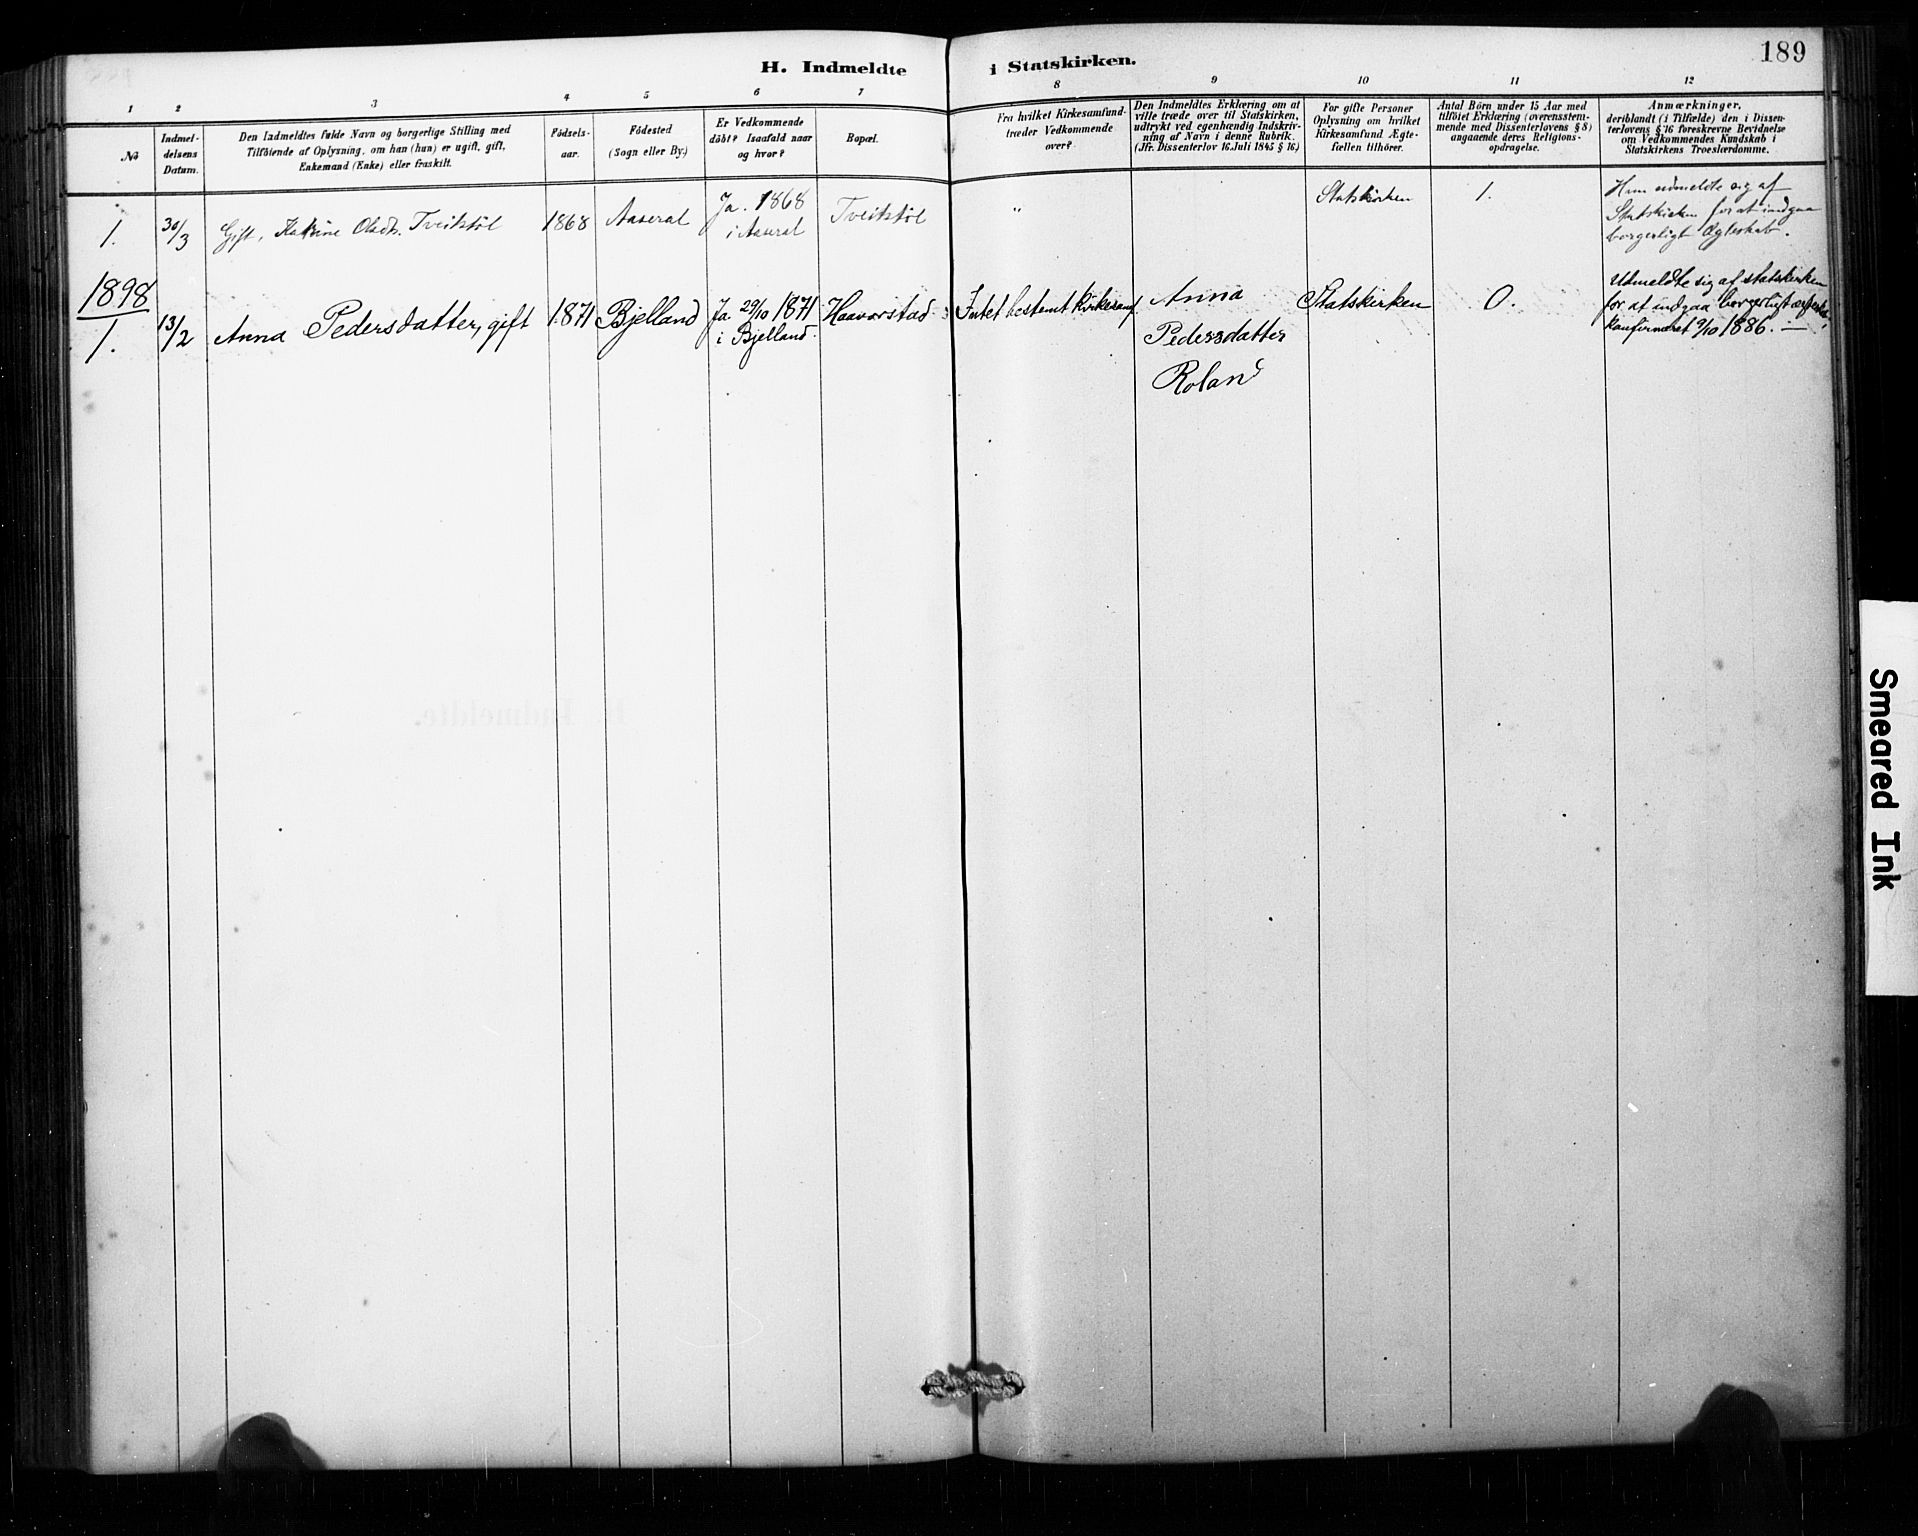 189
H. Indmeldte i Statskirken.
1 2 3 4 5 6 7 8 9 10 11 12
No
Indmel-
delsens
Datum.
Den Indmeldtes fulde Navn og borgerlige Stilling med
Tilföiende af Oplysning, om han (hun) er ugift, gift,
Enkemand (Enke) eller fraskilt.
Födsels-
aar.
Födested
(Sogn eller By.)
Er Vedkommende
döbt? Isaafald naar
og hvor?
Bopæl.
Fra hvilket Kirkesamfund
træder Vedkommende
over?
Den Indmeldtes Erklæring om at
ville træde over til Statskirken,
udtrykt ved egenhændig Indskriv-
ning af Navn i denne Rubrik.
(Jfr. Dissenterlov 16. Juli 1845 § 16.)
For gifte Personer
Oplysning om hvilket
Kirkesamfund Ægte-
fællen tilhörer.
Antal Börn under 15 Aar med
tilföiet Erklæring (overensstem-
mende med Dissenterlovens § 8)
angaaende deres Religions-
opdragelse.
Anmærkninger,
deriblandt (i Tilfælde) den i Dissen-
terlovens § 16 foreskrevne Bevidnelse
om Vedkommendes Kundskab i
Statskirkens Troeslærdomme.
1.
30/3
Gift, Katrine Olsdtr. Tveitstöl
1868
Aaseral
Ja. 1868
i Aaseral
Tveitstöl
"
Statskirken
1.
Hun udmeldte sig af
Statskirken for at indgaa
borgerligt Ægteskab.
1898
1.
13/2
Anna Pedersdatter, gift
1871
Bjelland
Ja 29/10 1871
i Bjelland.
Haavorstad
Intet bestemt kirkesamf.
Anna
Pedersdatter
Roland
Statskirken
0.
Udmeldte sig af statskirken
for at indgaa borgerligt ægteskab,
konfirmeret 9/10 1886. —
Smeared Ink